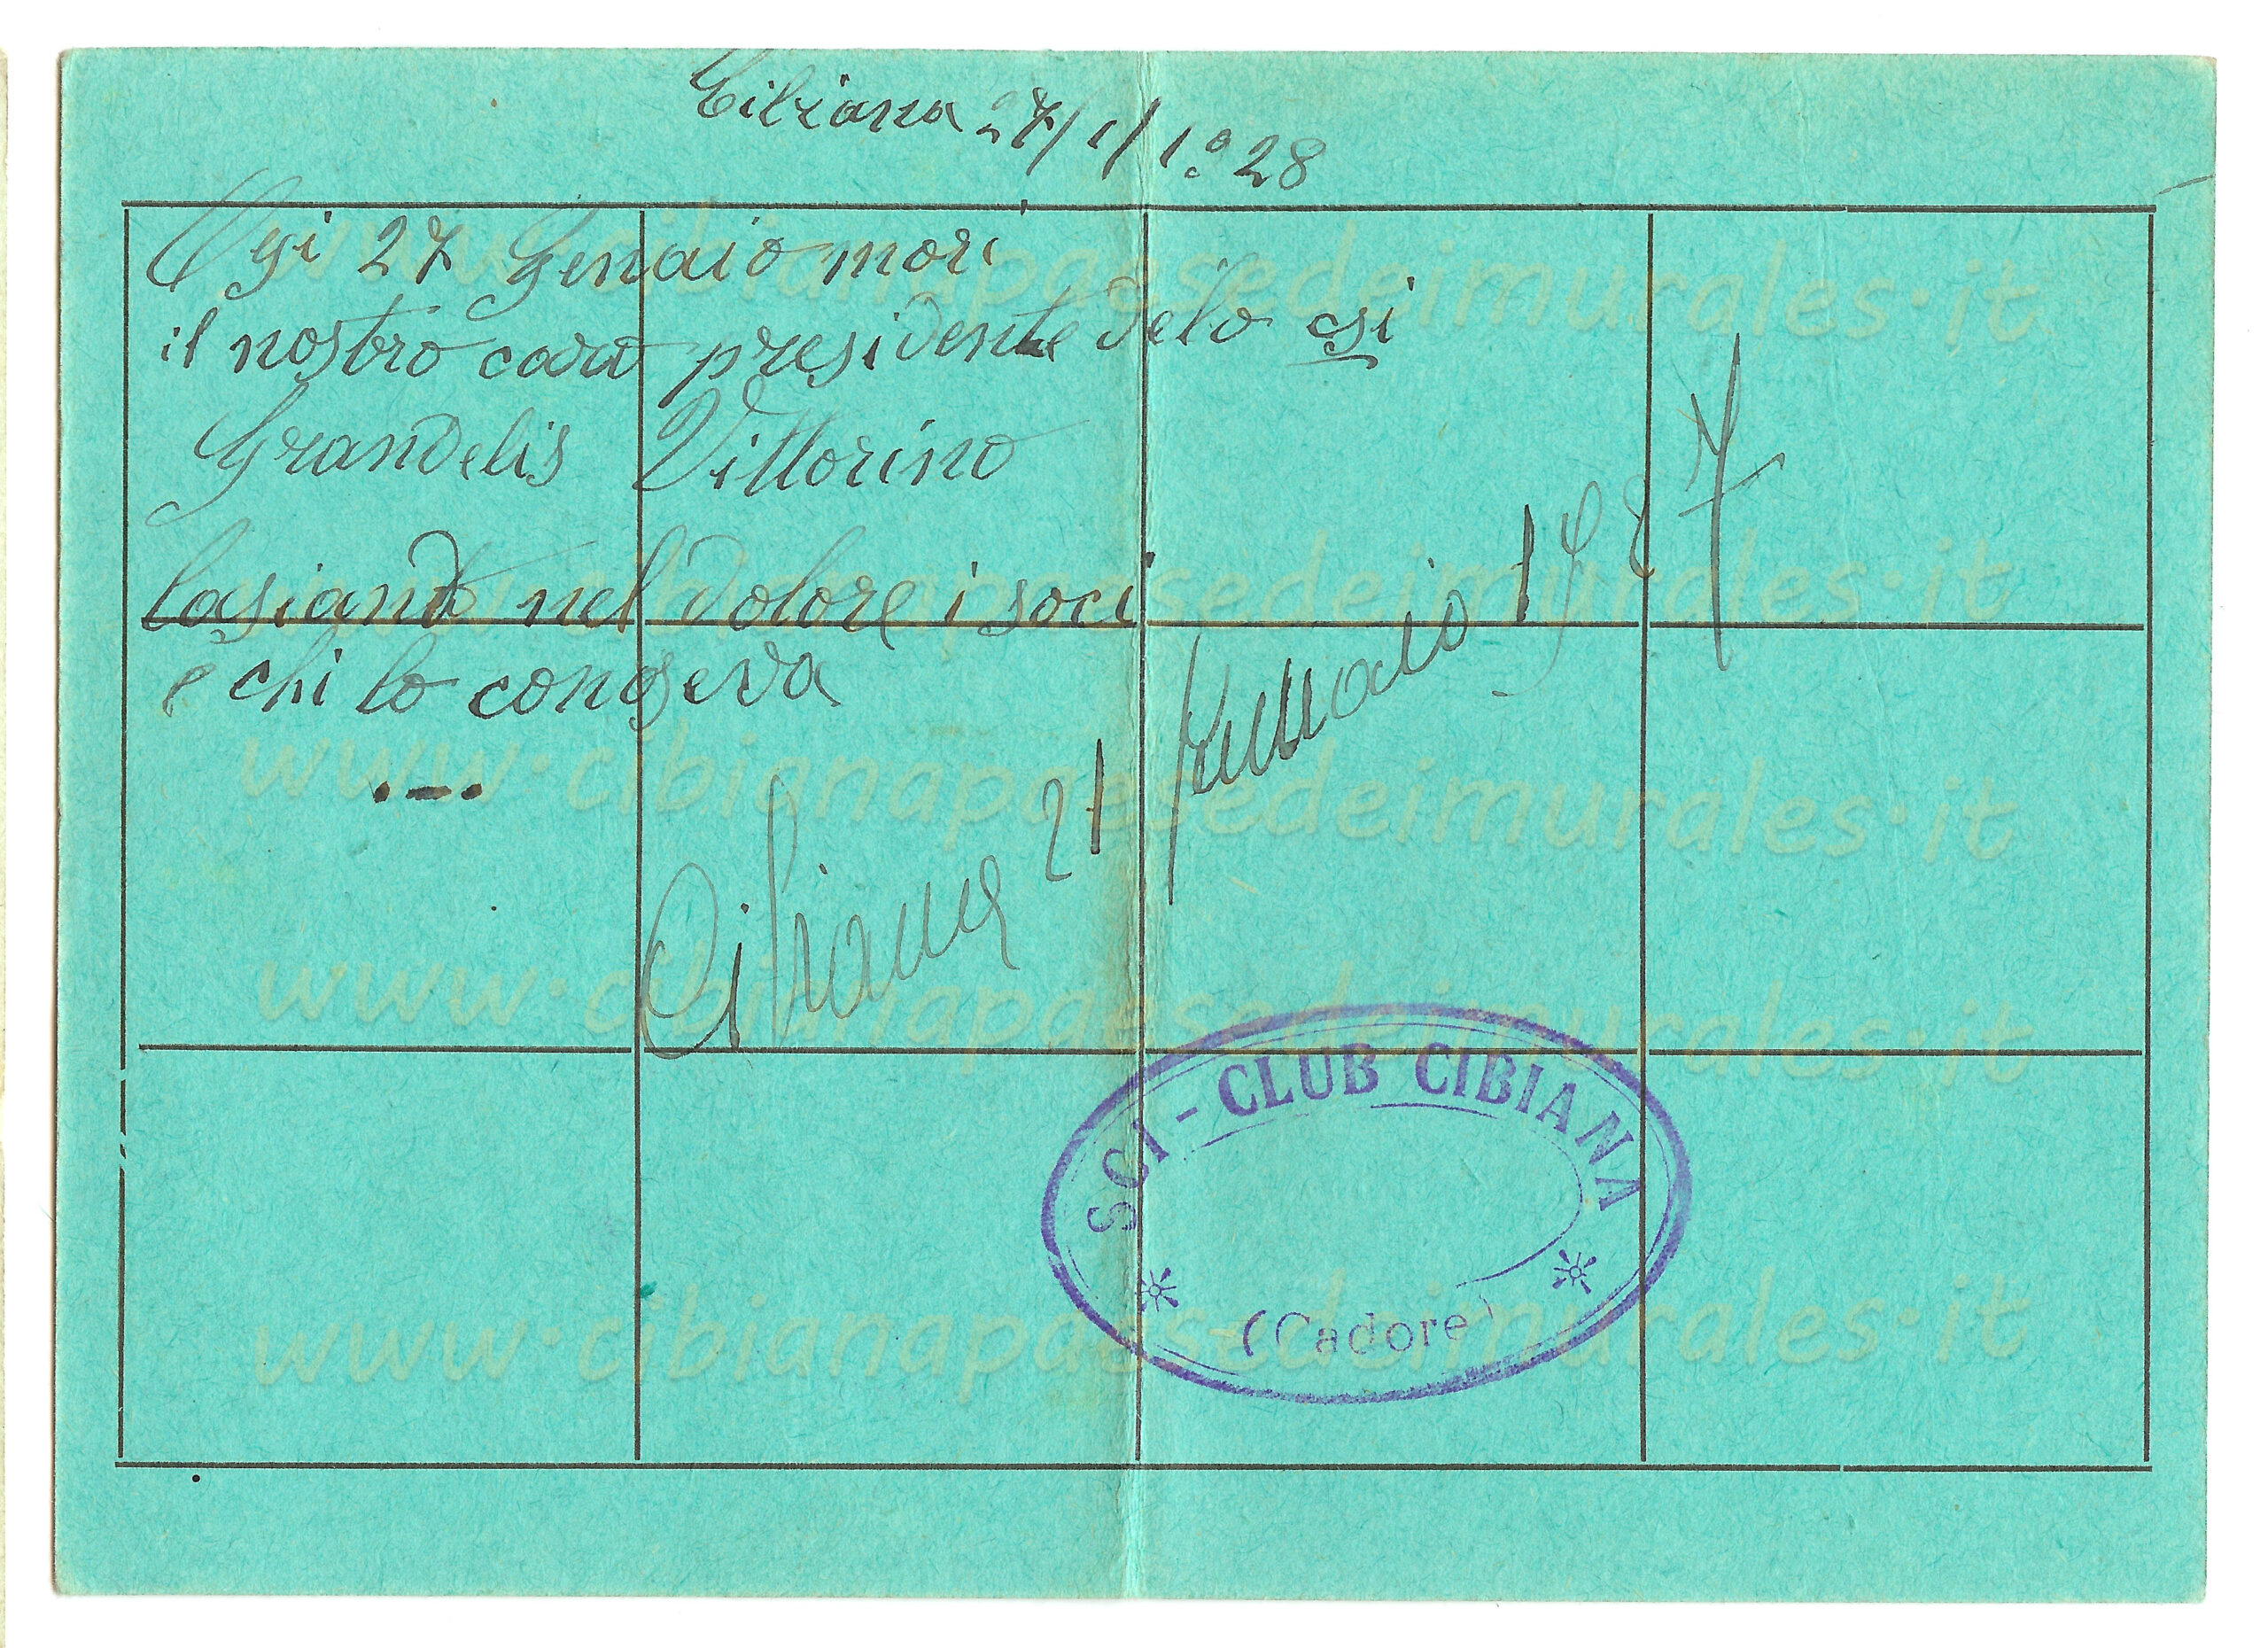 Cibiana 27/1/1928
Ogi 27 Genaio mori
il nostro caro presidente delo sci
Grandelis Vittorino
lasiando nel dolore i soci
e chi lo conoseva
Cibiana 21 Gennaio 1927
SCI - CLUB CIBIANA
(Cadore)
www.cibianapaesedeimurales.it
www.cibianapaesedeimurales.it
www.cibianapaesedeimurales.it
www.cibianapaesedeimurales.it
www.cibianapaesedeimurales.it